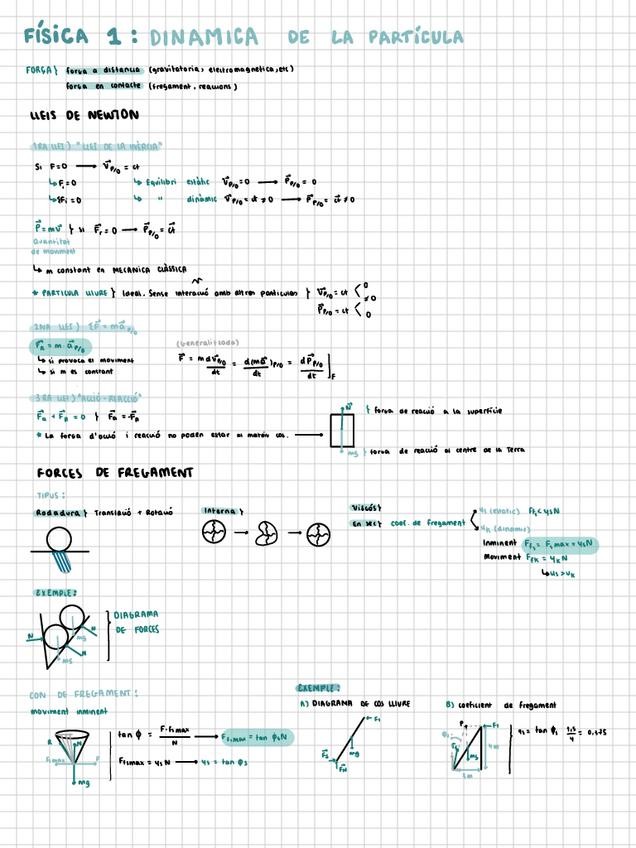 FÍSICA 1: DINAMICA DE LA PARTÍCULA
FORÇA} força a distancia (gravitatoria, electromagnetica, etc)
força en contacte (fregament, reaccions)
LLEIS DE NEWTON
1RA LLEI) "LLEI DE LA INÈRCIA"
Si F=0 → V⃗P/O = ct
↳ Fi=0 ↳ Equilibri estàtic V⃗P/O=0 → P⃗P/O = 0
↳ ΣFi =0 ↳ " dinàmic V⃗P/O = ct ≠ 0 → P⃗P/O = c⃗t ≠ 0
P⃗ = mv⃗ } si F⃗r = 0 → P⃗P/O = c⃗t
Quantitat
de moviment
↳ m constant en MECANICA CLÀSSICA
* PARTICULA LLIURE } Ideal. Sense interacció amb altres particules } V⃗P/O = ct < 0
≠0
P⃗P/O = ct < 0
2NA LLEI) ΣF⃗ = ma⃗P/O
F⃗R = m·a⃗P/O
(Generalitzada)
↳ si provoca el moviment
↳ si m es constant
F⃗ = m dv⃗P/O/dt = d(mv⃗)P/O/dt = dP⃗P/O/dt ]F
3RA LLEI) "ACCIÓ-REACCIÓ"
F⃗A + F⃗R = 0 } F⃗A = -F⃗R
N⃗ } força de reacció a la superfície
* La força d'acció i reacció no poden estar al mateix cos. →
mg } força de reacció al centre de la Terra
FORCES DE FREGAMENT
TIPUS:
Rodadura} Translació + Rotació
Interna}
Viscós}
En sec} coef. de fregament
μs (estatic) Ffs<μsN
μk (dinamic)
Inminent Ffs = Fsmax = μsN
Moviment Ffk = μkN
↳ μs > μk
EXEMPLE:
DIAGRAMA
DE FORCES
N
N
N
mg
mg
CON DE FREGAMENT:
moviment inminent
R
N
F
mg
tan ϕ = F·fsmax/N → Ffsmax = tan ϕsN
Ffsmax = μsN → μs = tan ϕs
EXEMPLE:
A) DIAGRAMA DE COS LLIURE
F1
mg
FN
B) coeficient de fregament
P
F1
mg
4m
3m
μs = tan ϕs 1,5/4 = 0,375